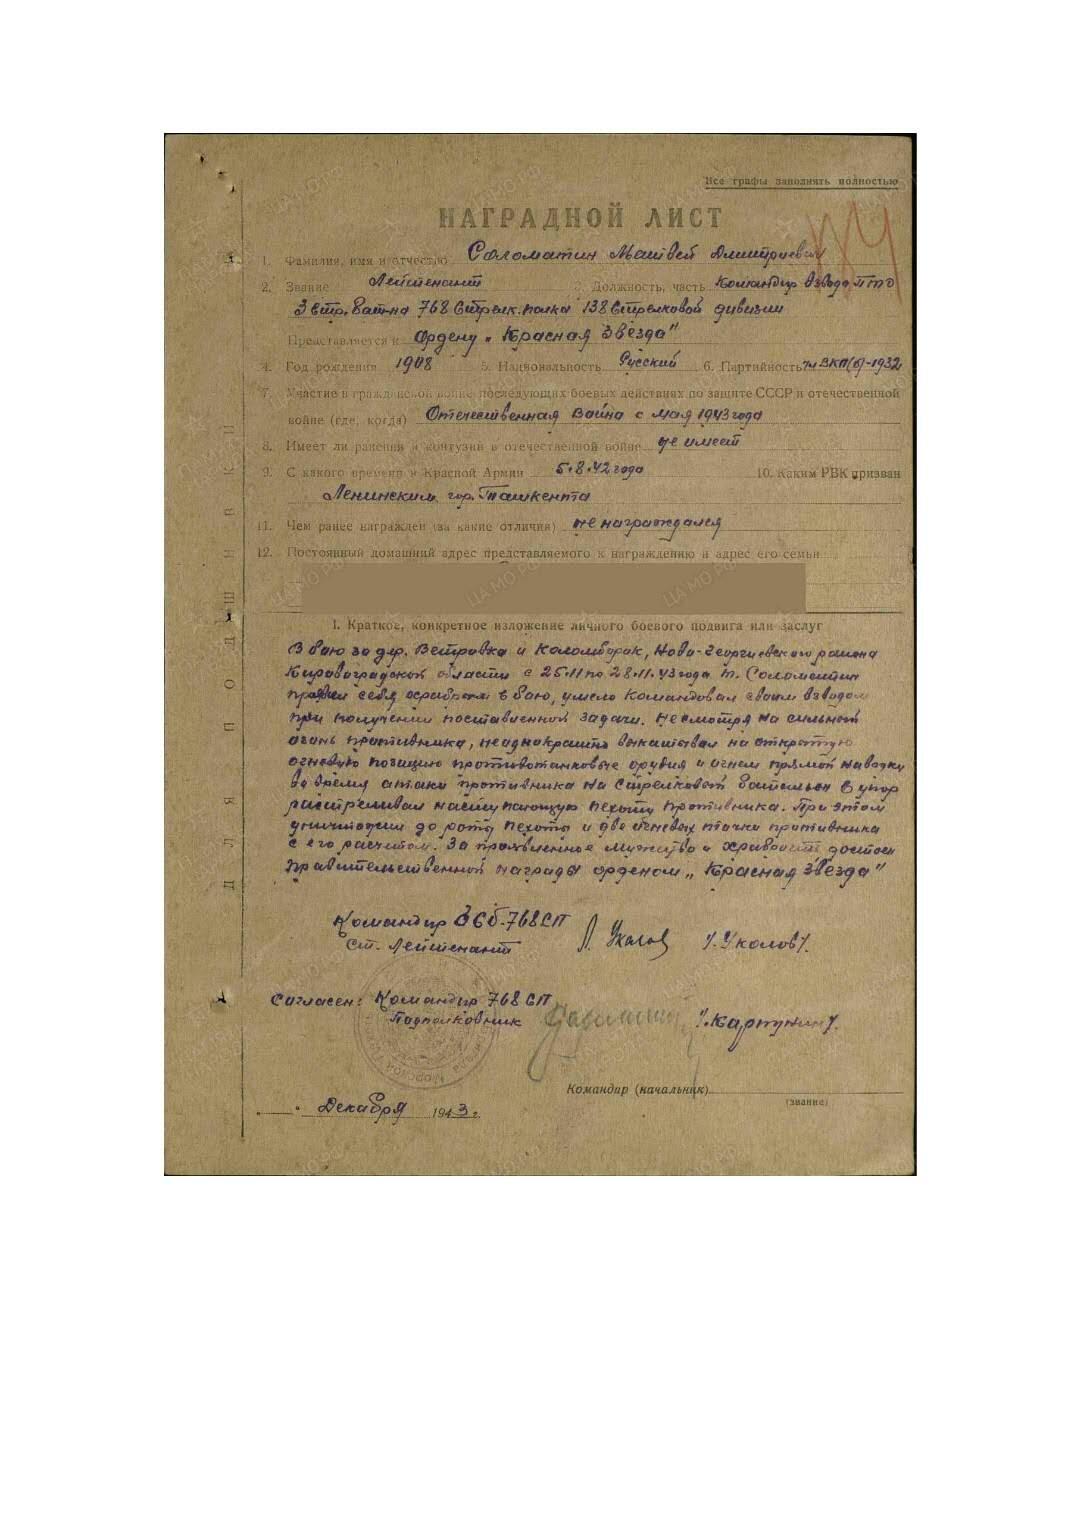 Все графы заполнять полностью
НАГРАДНОЙ ЛИСТ
1. Фамилия, имя и отчество Соломатин Матвей Дмитриевич
2. Звание Лейтенант 3. Должность, часть Командир взвода ПТО
3 стр. бат-на 768 Стрелк. полка 138 Стрелковой дивизии
Представляется к Ордену "Красная Звезда"
4. Год рождения 1908 5. Национальность Русский 6. Партийность чл ВКП(б)-1932
7. Участие в гражданской войне, последующих боевых действиях по защите СССР и отечественной
войне (где, когда) Отечественная Война с мая 1943 года
8. Имеет ли ранения и контузии в отечественной войне не имеет
9. С какого времени в Красной Армии 5.8.42 года 10. Каким РВК призван
Ленинским, гор. Ташкента
11. Чем ранее награжден (за какие отличия) не награждался
12. Постоянный домашний адрес представляемого к награждению и адрес его семьи
I. Краткое, конкретное изложение личного боевого подвига или заслуг
В баю за дер. Ветровка и Коломбарак, Ново-Георгиевского района
Кировоградской области с 25.11 по 28.11.43 года т. Соломатин
себя храбрым в баю, умело командовал своим взводом
при получении поставленной задачи. Несмотря на сильный
огонь противника, неаднократно выкатывал на открытую
огневую позицию противотанковые орудия и огнем прямой наводки
во время атаки противника на Стрелковый батальон в упор
расстреливал наступающую пехоту противника. При этом
уничтожил до роты пехоты и две огневых тачки противника
с его расчетом. За проявленное мужество и храбрость достоин
правительственной награды орденом "Красная Звезда"
Командир 3 Сб-768 СП
ст. Лейтенант Уколов /Уколов/.
Согласен: Командир 768 СП
Подполковник /Картунин/.
Командир (начальник)
(звание)
" " Декабря 1943 г.
ДЛЯ ПОДШИВКИ
ЦАМО РФ